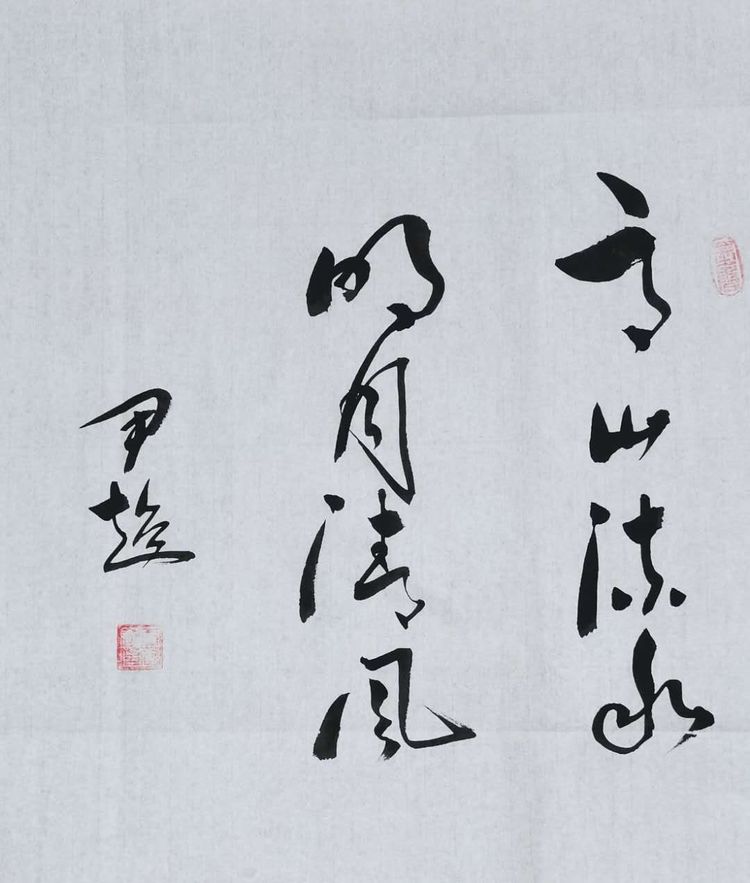 高山流水
明月清风
尹